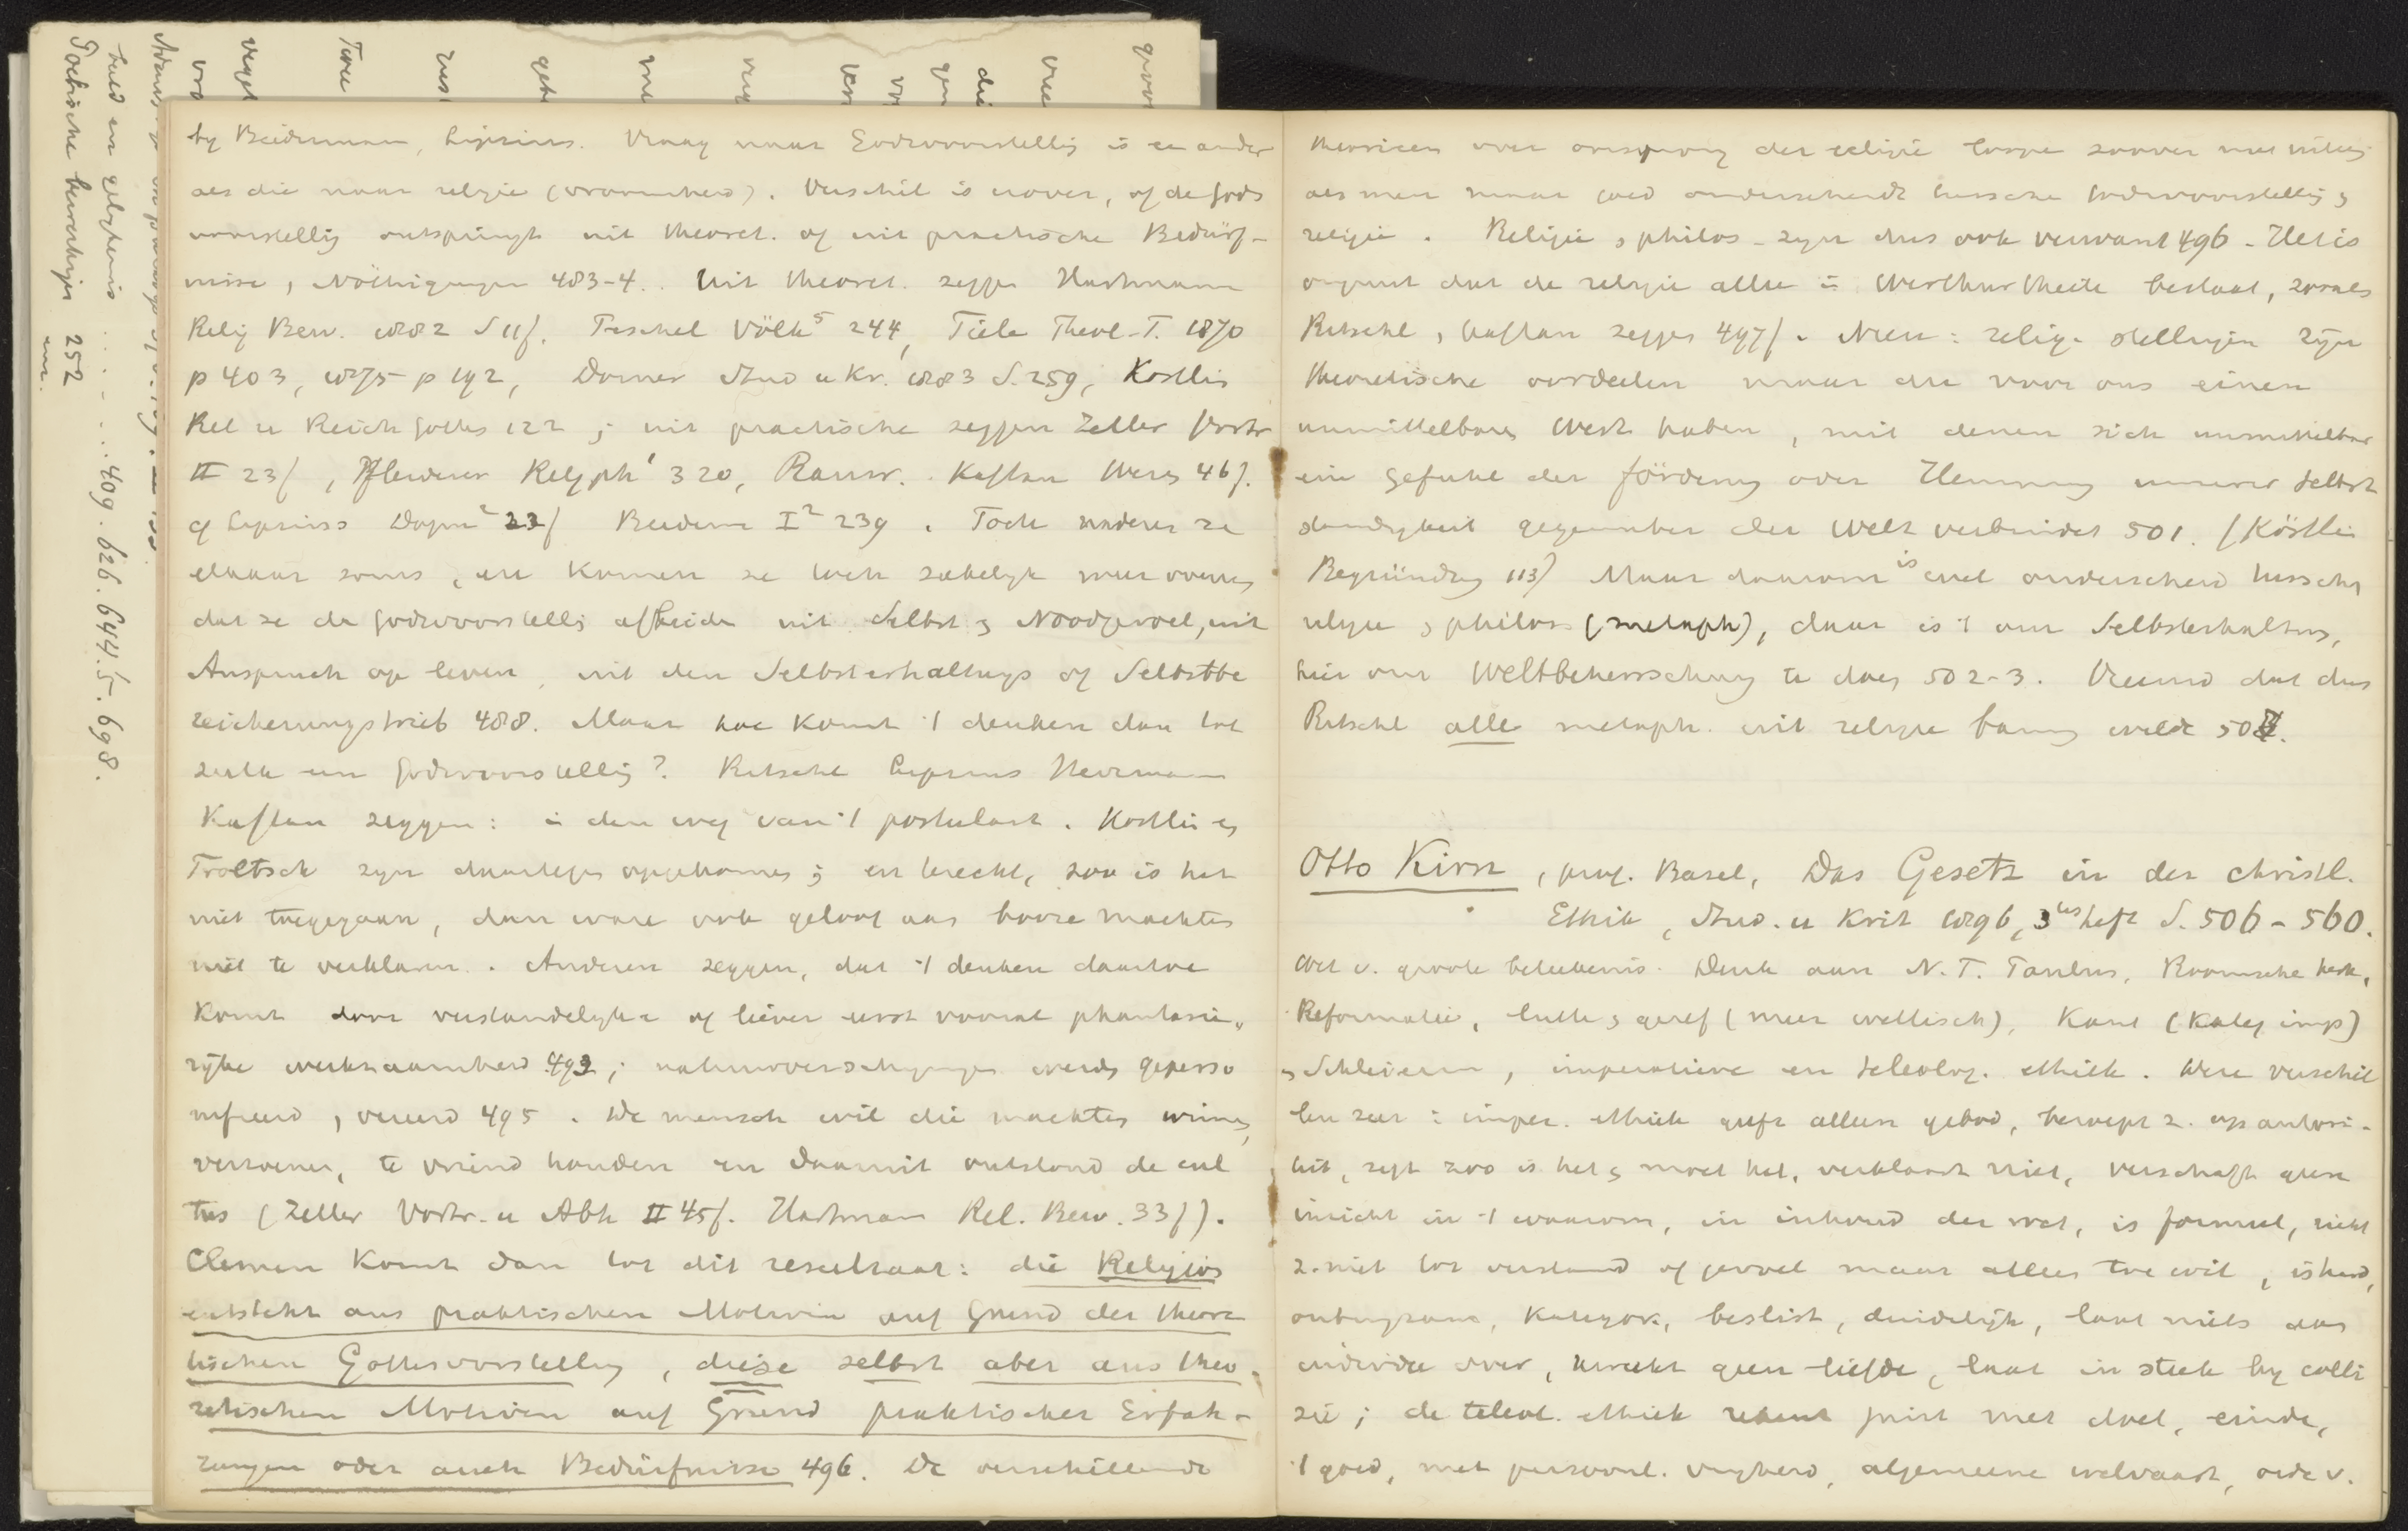 by Biedermann, Lipsius. Vraag naar Godsvoorstellig is een ander
als die naar religie (vroomheid). Verschil is erover, of de gods
voorstellig ontspringt uit theoret. of uit practische Bedürf-
nisse, Nöthigungen 483-4. Uit theoret. zeggen Hartmann
Relig Bew. 1882 S 11f. Peschel Völk⁵ 244, Tiele Theol-T. 1870
p 403, 1875 p 192, Dorner Stud u Kr. 1883 S. 259, Köstlin
Rel u Reich Gottes 122; uit practische zeggen Zeller Vortr
II 23f, Pfleiderer Religph¹ 320, Rauw. Kaftan Wesen 46f.
cf Lipsius Dogm² 23f Biederm I² 239. Toch naderen ze
elkaar soms, en komen ze toch zakelyk meer overeen
dat ze de godsvoorstellig afleiden uit Selbst & Noodgevoel, uit
Anspruch op leven, uit den Selbsterhaltungs of Selbstbe
reicherungstrieb 488. Maar hoe komt 't denken dan tot
zulk een godsvoorstellig? Ritschl Lipsius Herrmann
Kaftan zeggen: in den weg van 't postulaat. Köstlin en
Troeltsch zyn daartegen opgekomen; en terecht, zoo is het
niet toegegaan, dan ware ook geloof aan booze machten
niet te verklaren. Anderen zeggen, dat 't denken daartoe
komt door verstandelyke of liever eerst vooral phantasie,,
rijke werkzaamheid 493; natuurverschynsels werden geperso
nifieerd, vereerd 495. De mensch wil die machten winnen,
verzoenen, te vriend houden en daaruit ontstond de cul
tus (Zeller Vortr. u Abh II 45f. Hartmann Rel. Bew. 33f).
Clemen komt dan tot dit resultaat: die Religion
entsteht aus praktischen Motiven auf Grund der theore
tischen Gottesvorstellung, diese selbst aber aus theo-
retischen Motiven auf Grund praktischer Erfah-
rungen oder auch Bedürfnisse 496. De verschillende
theorieen over oorsprong der religie loopen zoover niet uiteen
als men maar goed onderscheidt tusschen Godsvoorstellig &
religie. Religie & philos. zyn dus ook verwant 496. Het is
onjuist dat de religie alleen in Werthurtheile bestaat, zooals
Ritschl, Kaftan zeggen 497f. Neen: relig. stellingen zijn
theoretische oordeelen maar die voor ons einen
unmittelbaren Werth haben, mit denen sich unmittelbar
ein Gefühl der Förderung oder Hemmung unserer Selbst
ständigkeit gegenüber der Welt verbindet 501. (Köstlin
Begründung 113) Maar daarom is er wel onderscheid tusschen
religie & philos (metaph), daar is 't om Selbsterhaltung,
hier om Weltbeherrschung te doen 502-3. Vreemd dat dus
Ritschl alle metaph. uit religie bannen wilde 504.
Otto Kirn, prof. Basel, Das Gesetz in der christl.
Ethik, Stud. u Krit 1896, 3tes heft S. 506-560.
Wet v. groote beteekenis. Denk aan N.T. Paulus, Roomsche kerk,
Reformatie, Luth & geref (meer wettisch), Kant (Kateg imp)
& Schleierm, imperatieve en teleolog. ethiek. Deze verschil
len zeer: imper. ethiek geeft alleen gebod, beroept z. op autori-
teit, zegt zoo is het & moet het, verklaart niet, verschaft geen
inzicht in 't waarom, in inhoud der wet, is formeel, richt
z. niet tot verstand of gevoel maar alleen tot wil, is hard,
onbuigzaam, kategor., beslist, duidelijk, laat niets aan
individu over, wekt geen liefde, laat in steek by colli
sie; de teleol. ethiek rekent juist met doel, einde,
't goed, met persoonl. vryheid, algemeene welvaart, orde v.
Poetische bewerkingen 252
409. 626. 644. 5. 698.